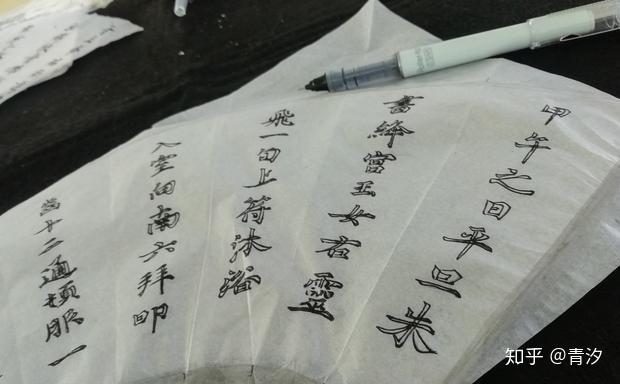 甲午之日平旦朱
書絳宮玉女右靈
飛一旬上符沐浴
入室向南六拜叩
齒十二通頓服一
知乎 @青汐